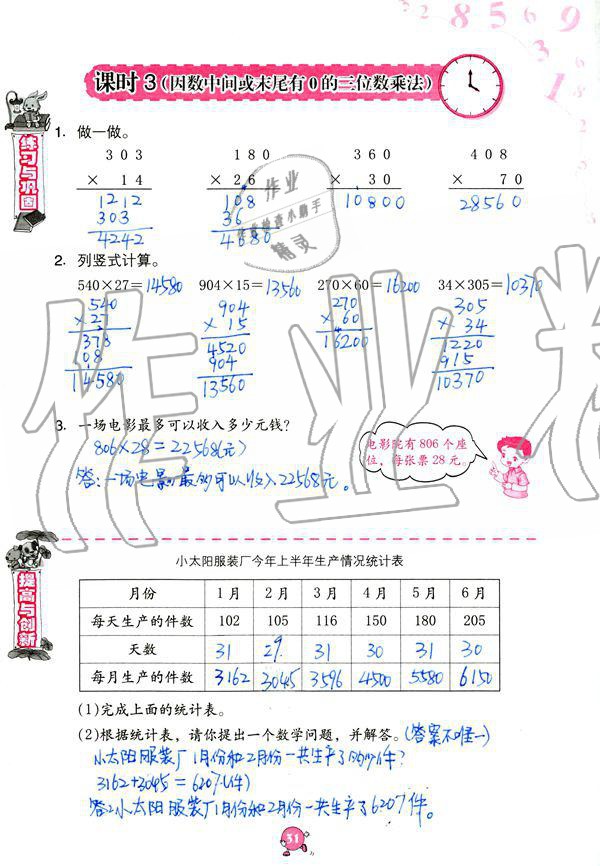 课时3(因数中间或末尾有0的三位数乘法)
练习与巩固
1. 做一做。
303 180 360 408
× 14 × 26 × 30 × 70
1212 108 10800 28560
303 36
4242 4680
2. 列竖式计算。
540×27=14580 904×15=13560 270×60=16200 34×305=10370
540 904 270 305
×27 ×15 ×60 ×34
378 4520 16200 1220
108 904 915
14580 13560 10370
3. 一场电影最多可以收入多少元钱?
806×28=22568(元)
答:一场电影最多可以收入22568元。
电影院有806个座
位,每张票28元。
提高与创新
小太阳服装厂今年上半年生产情况统计表
月份 1月 2月 3月 4月 5月 6月
每天生产的件数 102 105 116 150 180 205
天数 31 29 31 30 31 30
每月生产的件数 3162 3045 3596 4500 5580 6150
(1)完成上面的统计表。
(2)根据统计表,请你提出一个数学问题,并解答。(答案不唯一)
小太阳服装厂1月份和2月份一共生产了件?
3162+3045=6207(件)
答:小太阳服装厂1月份和2月份一共生产了6207件。
31
作业
作业检查小助手
精灵